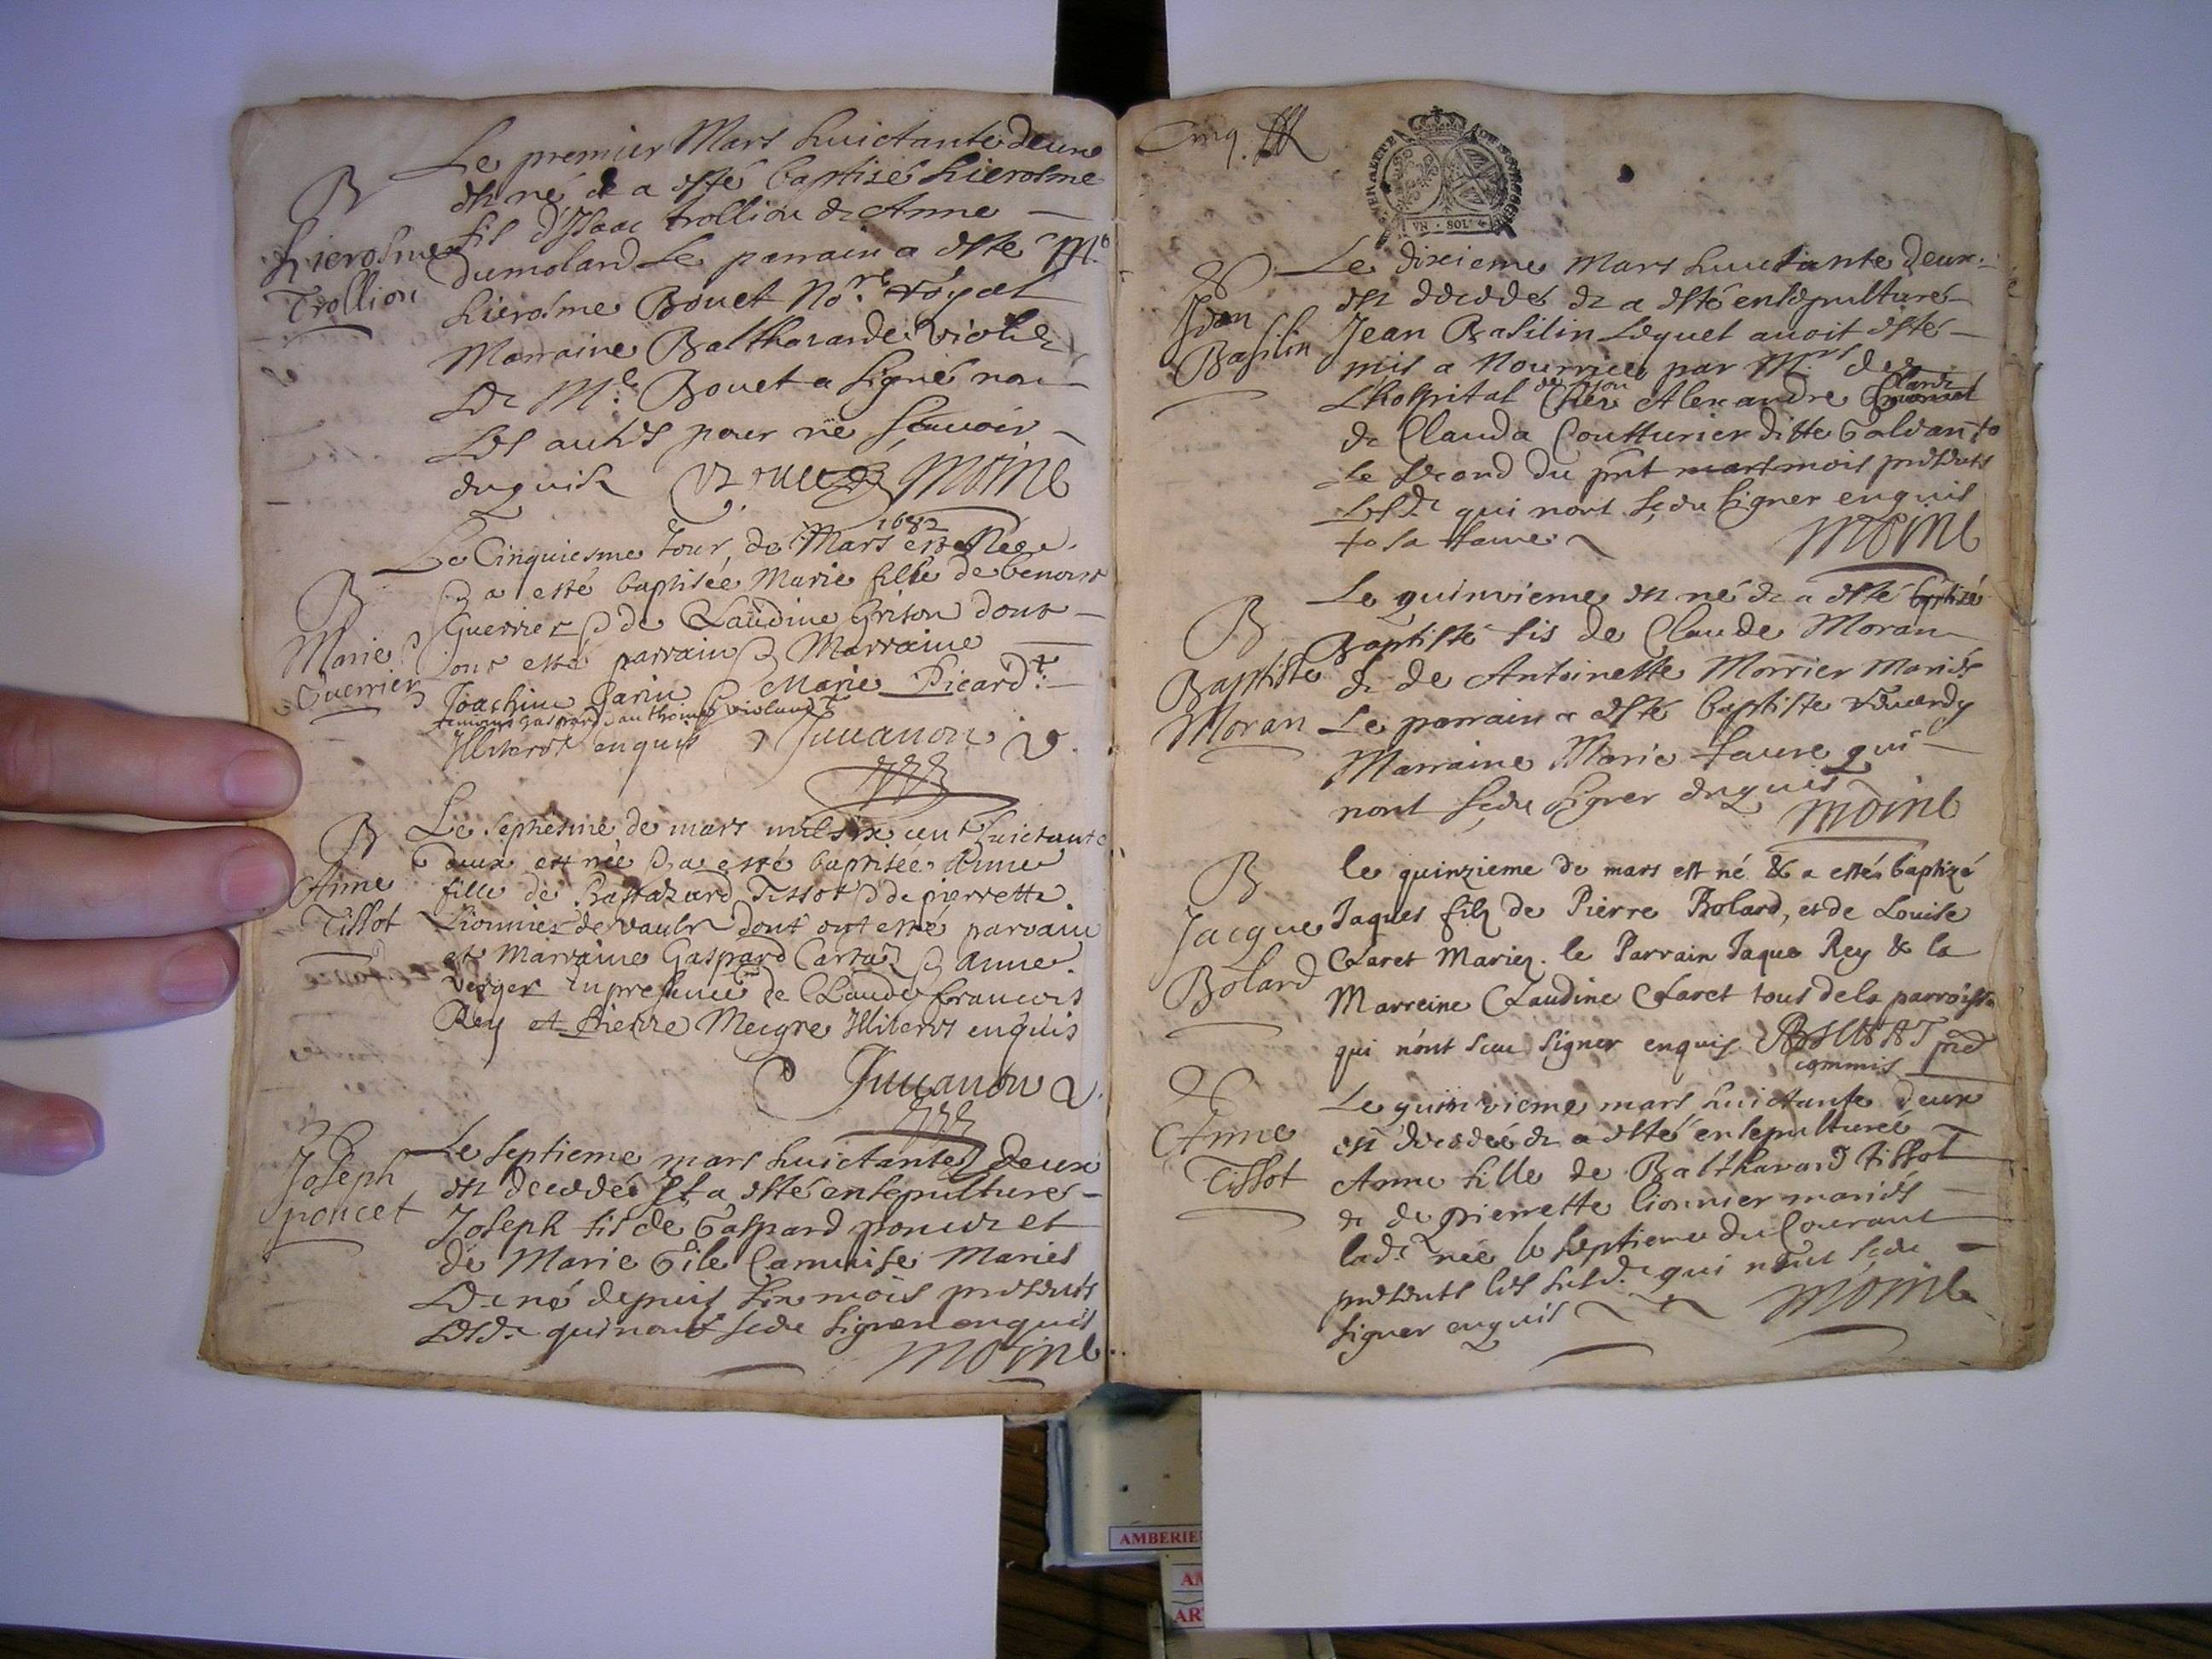 B
Hierosme
Trollion
Le premier Mars huictante deux
est né & a esté baptisé hierosme
fils d'Isaac trollion & Anne
dumolard Le parrain a esté M.e
hierosme Bouet No.re royal
Marraine Balthazarde violet
Led. M.e Bouet a signé non
les autres pour ne scauoir
enquis Bouet Moine
B
Marie
Guerrier
Le Cinquiesme Jour de Mars 1682 est Née
& a esté baptisée Marie fille de benoist
Guerrier & de Claudine Grison dont
ont esté parrain & Marraine
Joachim Garin & Marie Picard
temoins Gaspard & anthoine violand
Illiterés enquis Juuanon v.
B
Anne
Tissot
Le septiesme de mars mil six cent huictante
deux est née & a esté baptisée Anne
fille de Baltazard Tissot & de pierrette
Lionnier de vaulx dont ont esté parrain
et Marraine Gaspard & Anne
verger en presence de Claude francois
Rey et Pierre Meigre Illiterés enquis
Juuanon v.
Joseph
poncet
Le septieme mars huictante deux
est decedé Et a esté ensepulturé
Joseph fis de Gaspard poncet et
de Marie Gile Camuise Mariés
né depuis six mois presents
lesd. qui nont sceu signer enquis
Moine
Cinq.
GENERALITE DE BOURGOGNE
VN · SOL
Jean
Basilin
Le dixieme Mars huictante deux
est decedé & a esté ensepulturé
Jean Basilin Lequel auoit esté
mis a Nourrice par M.rs de
L'hospital de lyon Chez Alexandre
& Clauda Coutturier ditte Galdan
le second du pnt mois presents
Lesd. qui nont sceu signer enquis
Moine
B
Baptiste
Moran
Le quinzieme est né & a esté baptisé
Baptiste fis de Claude Moran
& de Antoinette Morrier Mariés
Le parrain a esté baptiste reuerdy
Marraine Marie faure qui
nont sceu signer enquis
Moine
B
Jacque
Bolard
le quinzieme de mars est né & a esté baptizé
Jaques filz de Pierre Bolard, et de Louise
Claret Mariez. le Parrain Jaque Rey & la
Marreine Claudine Claret tous de la parroisse
qui n'ont sceu signer enquis
commis
Anne
Tissot
Le quinzieme mars huictante deux
est decedée & a esté ensepulturée
Anne fille de Balthazard tissot
& de pierrette lionnier mariés
lad. née le septieme du Courant
presents les susd. qui nont sceu
signer enquis Moine
AMBERIE
AM
AR